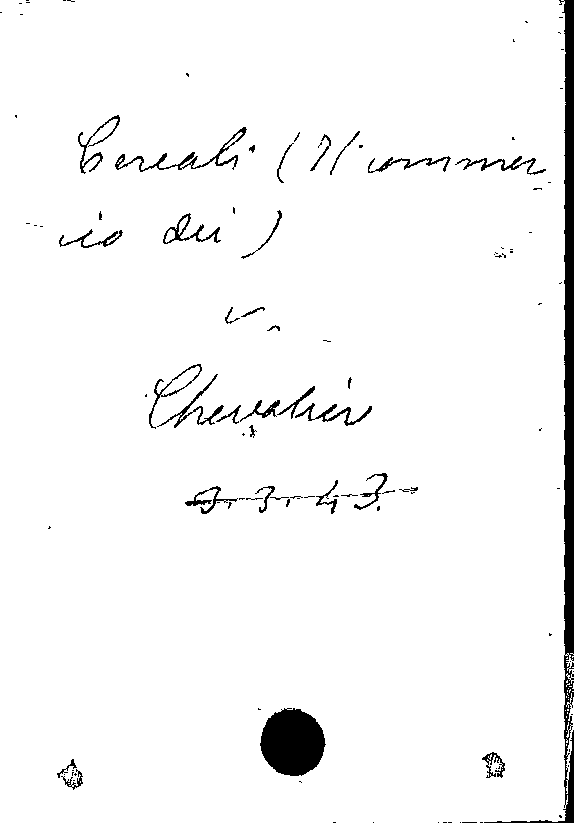 Cereali (Il commer
cio dei)
v.
Chevalier
3. 3. 43.